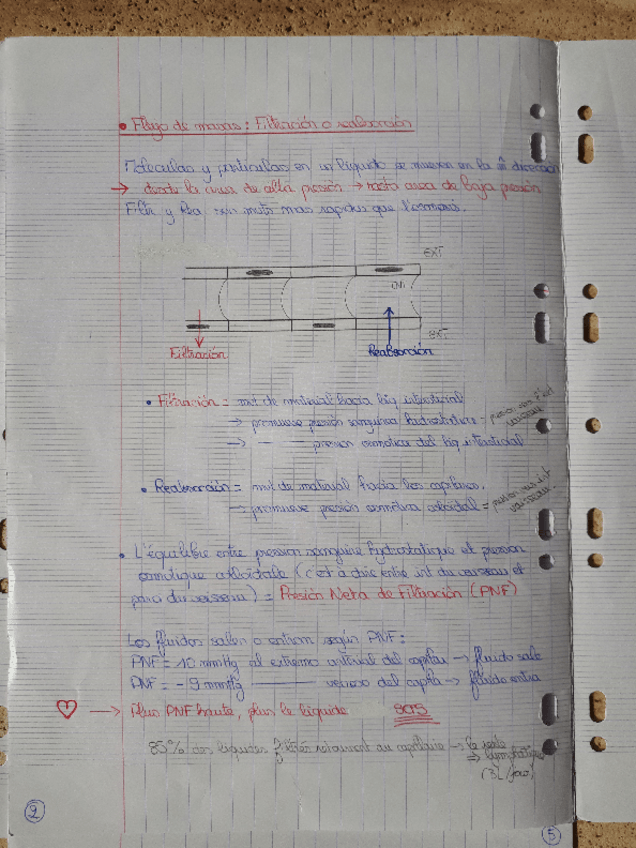 • Flujo de masas : Filtración o reabsorción
Moleculas y particulas en un liquido se mueven en la dirección
→ desde la area de alta presión → hasta area de baja presión
Filtr y Rea son muto mas rapidas que l'osmosis.
EXT
INT
EXT
Filtración
Reabsorción
• Filtración = mvt de material hacia liq intersticial
→ promueve presión sanguinea hydrostatica = pression vers l'ext vaisseau
→ — pression osmotica del liq intersticial
• Reabsorción = mvt de material hacia los capilares.
→ promueve presión osmotica coloidal = pression vers int vaisseau.
• L'équilibre entre pression sanguine hydrostatique et pression
osmotique colloïdale (c'est à dire entre int du vaisseau et
paroi du vaisseau) = Presión Neta de Filtración (PNF)
Los fluidos salen o entran según PNF :
PNF = 10 mmHg al extremo arterial del capilar → fluido sale
PNF = - 9 mmHg ——— venoso del capilar → fluido entra
♡ → Plus PNF haute, plus le liquide SORS
85% des liquides filtrés retournent au capillaire → le reste
→ lymphatique
(3L/jour)
2
5